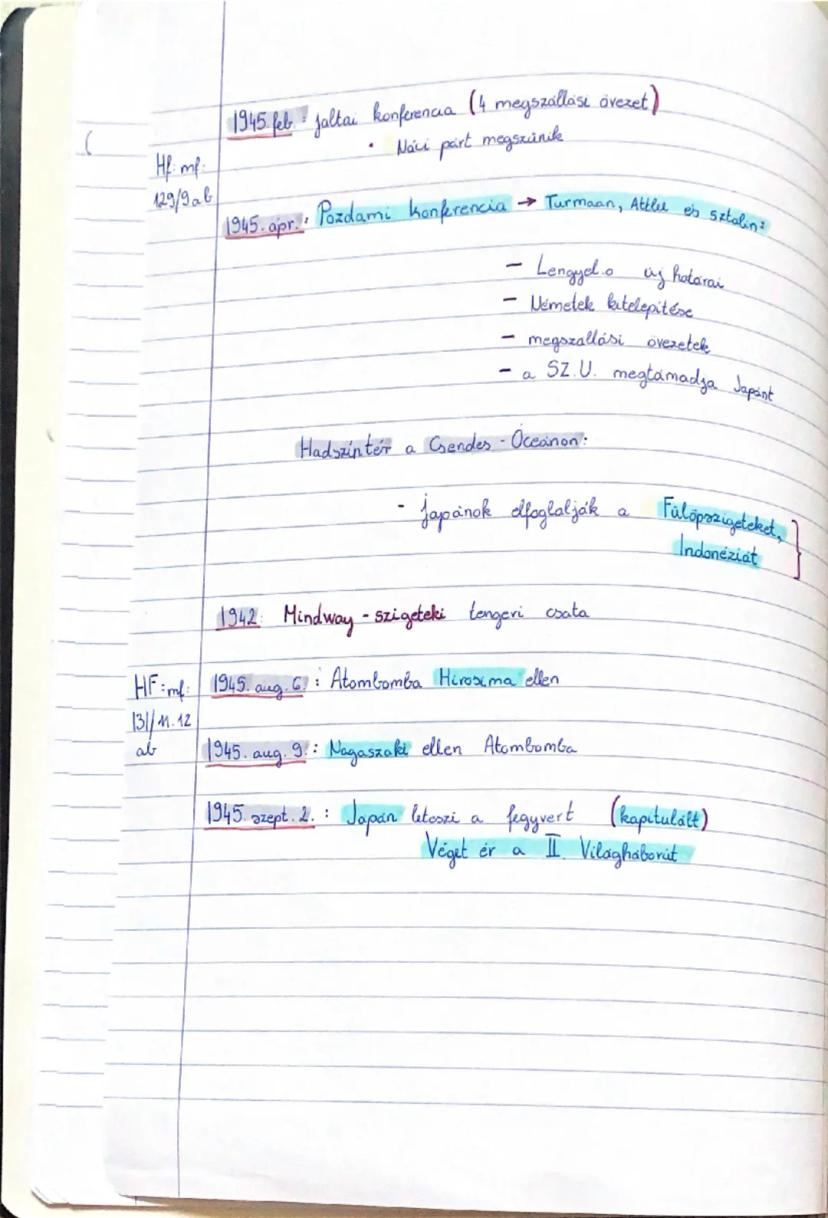 1945. feb. : jaltai konferencia (4 megszállási övezet)
• Náci párt megszűnik
Hf: mf.
129/9 ab
1945. ápr. : Pozdami konferencia → Turmaan, Attlee és Sztalin:
– Lengyel.o új határai
– Németek kitelepítése
– megszállási övezetek
– a SZ.U. megtámadja Japánt
Hadszíntér a Csendes-Óceánon:
- japánok elfoglalják a Fülöpszigeteket,
Indonéziát
1942. Mindway-szigeteki tengeri csata
HF: mf:
131/11.12
ab
1945. aug. 6. : Atombomba Hirosima ellen
1945. aug. 9. : Nagaszaki ellen Atombomba
1945. szept. 2. : Japán leteszi a fegyvert (kapitulált)
Véget ér a II. Világháborút